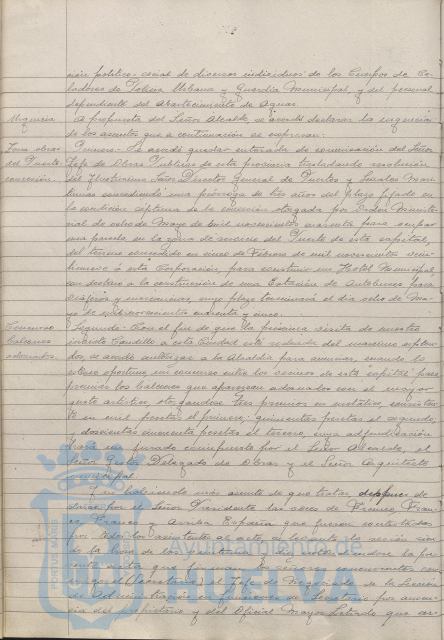 ción político-social de diversos individuos de los Cuerpos de Ce-
ladores de Policía Urbana y Guardia Municipal, y del personal
dependiente del Abastecimiento de Aguas.
Urgencia A propuesta del Señor Alcalde, se acordó declarar la urgencia
de los asuntos que a continuación se expresan:
Zona obras Primero.- Se acordó quedar enterada de comunicación del Señor
del Puerto Jefe de Obras Públicas de esta provincia trasladando resolución
concesión. del Ilustrísimo Señor Director General de Puertos y Señales Marí-
timas concediendo una prórroga de tres años del plazo fijado en
la condición séptima de la concesión otorgada por Orden Ministe-
rial de ocho de Mayo de mil novecientos cuarenta para ocupar
una parcela en la zona de servicio del Puerto de esta capital,
del terreno concedido en cinco de Febrero de mil novecientos
a esta Corporación, para construir un Hotel Municipal,
con destino a la construcción de una Estación de Autobuses para
viajeros y mercancías, cuyo plazo terminará el día ocho de Ma-
yo de mil novecientos cuarenta y cinco.
Concurso Segundo.- Con el fin de que la próxima visita de nuestro
balcones invicto Caudillo a esta Ciudad esté rodeada del máximo esplen-
adornados. dor, se acordó autorizar a la Alcaldía para anunciar, cuando lo
estime oportuno, un concurso entre los vecinos de esta capital para
premiar los balcones que aparezcan adornados con el mayor
gusto artístico, otorgándose tres premios en metálico, consisten-
te en mil pesetas el primero; quinientas pesetas el segundo,
y doscientas cincuenta pesetas el tercero, cuya adjudicación
hará un jurado compuesto por el Señor Alcalde, el
Señor Gestor Delegado de Obras y el Señor Arquitecto
municipal.
Y no habiendo más asuntos de que tratar, después de
darse por el Señor Presidente las voces de Franco, Fran-
co, Franco y Arriba España que fueron contestadas
por todos los asistentes al acto, se levantó la sesión sien-
do la hora de las
senta acta que firman los señores concurrentes con-
migo el Secretario, el Jefe de Negociado de la Sección
de Administración en funciones de Secretario por ausen-
cia del propietario y del Oficial Mayor Letrado que cer-
PORTUS MARIS
Ayuntamiento de
HUELVA